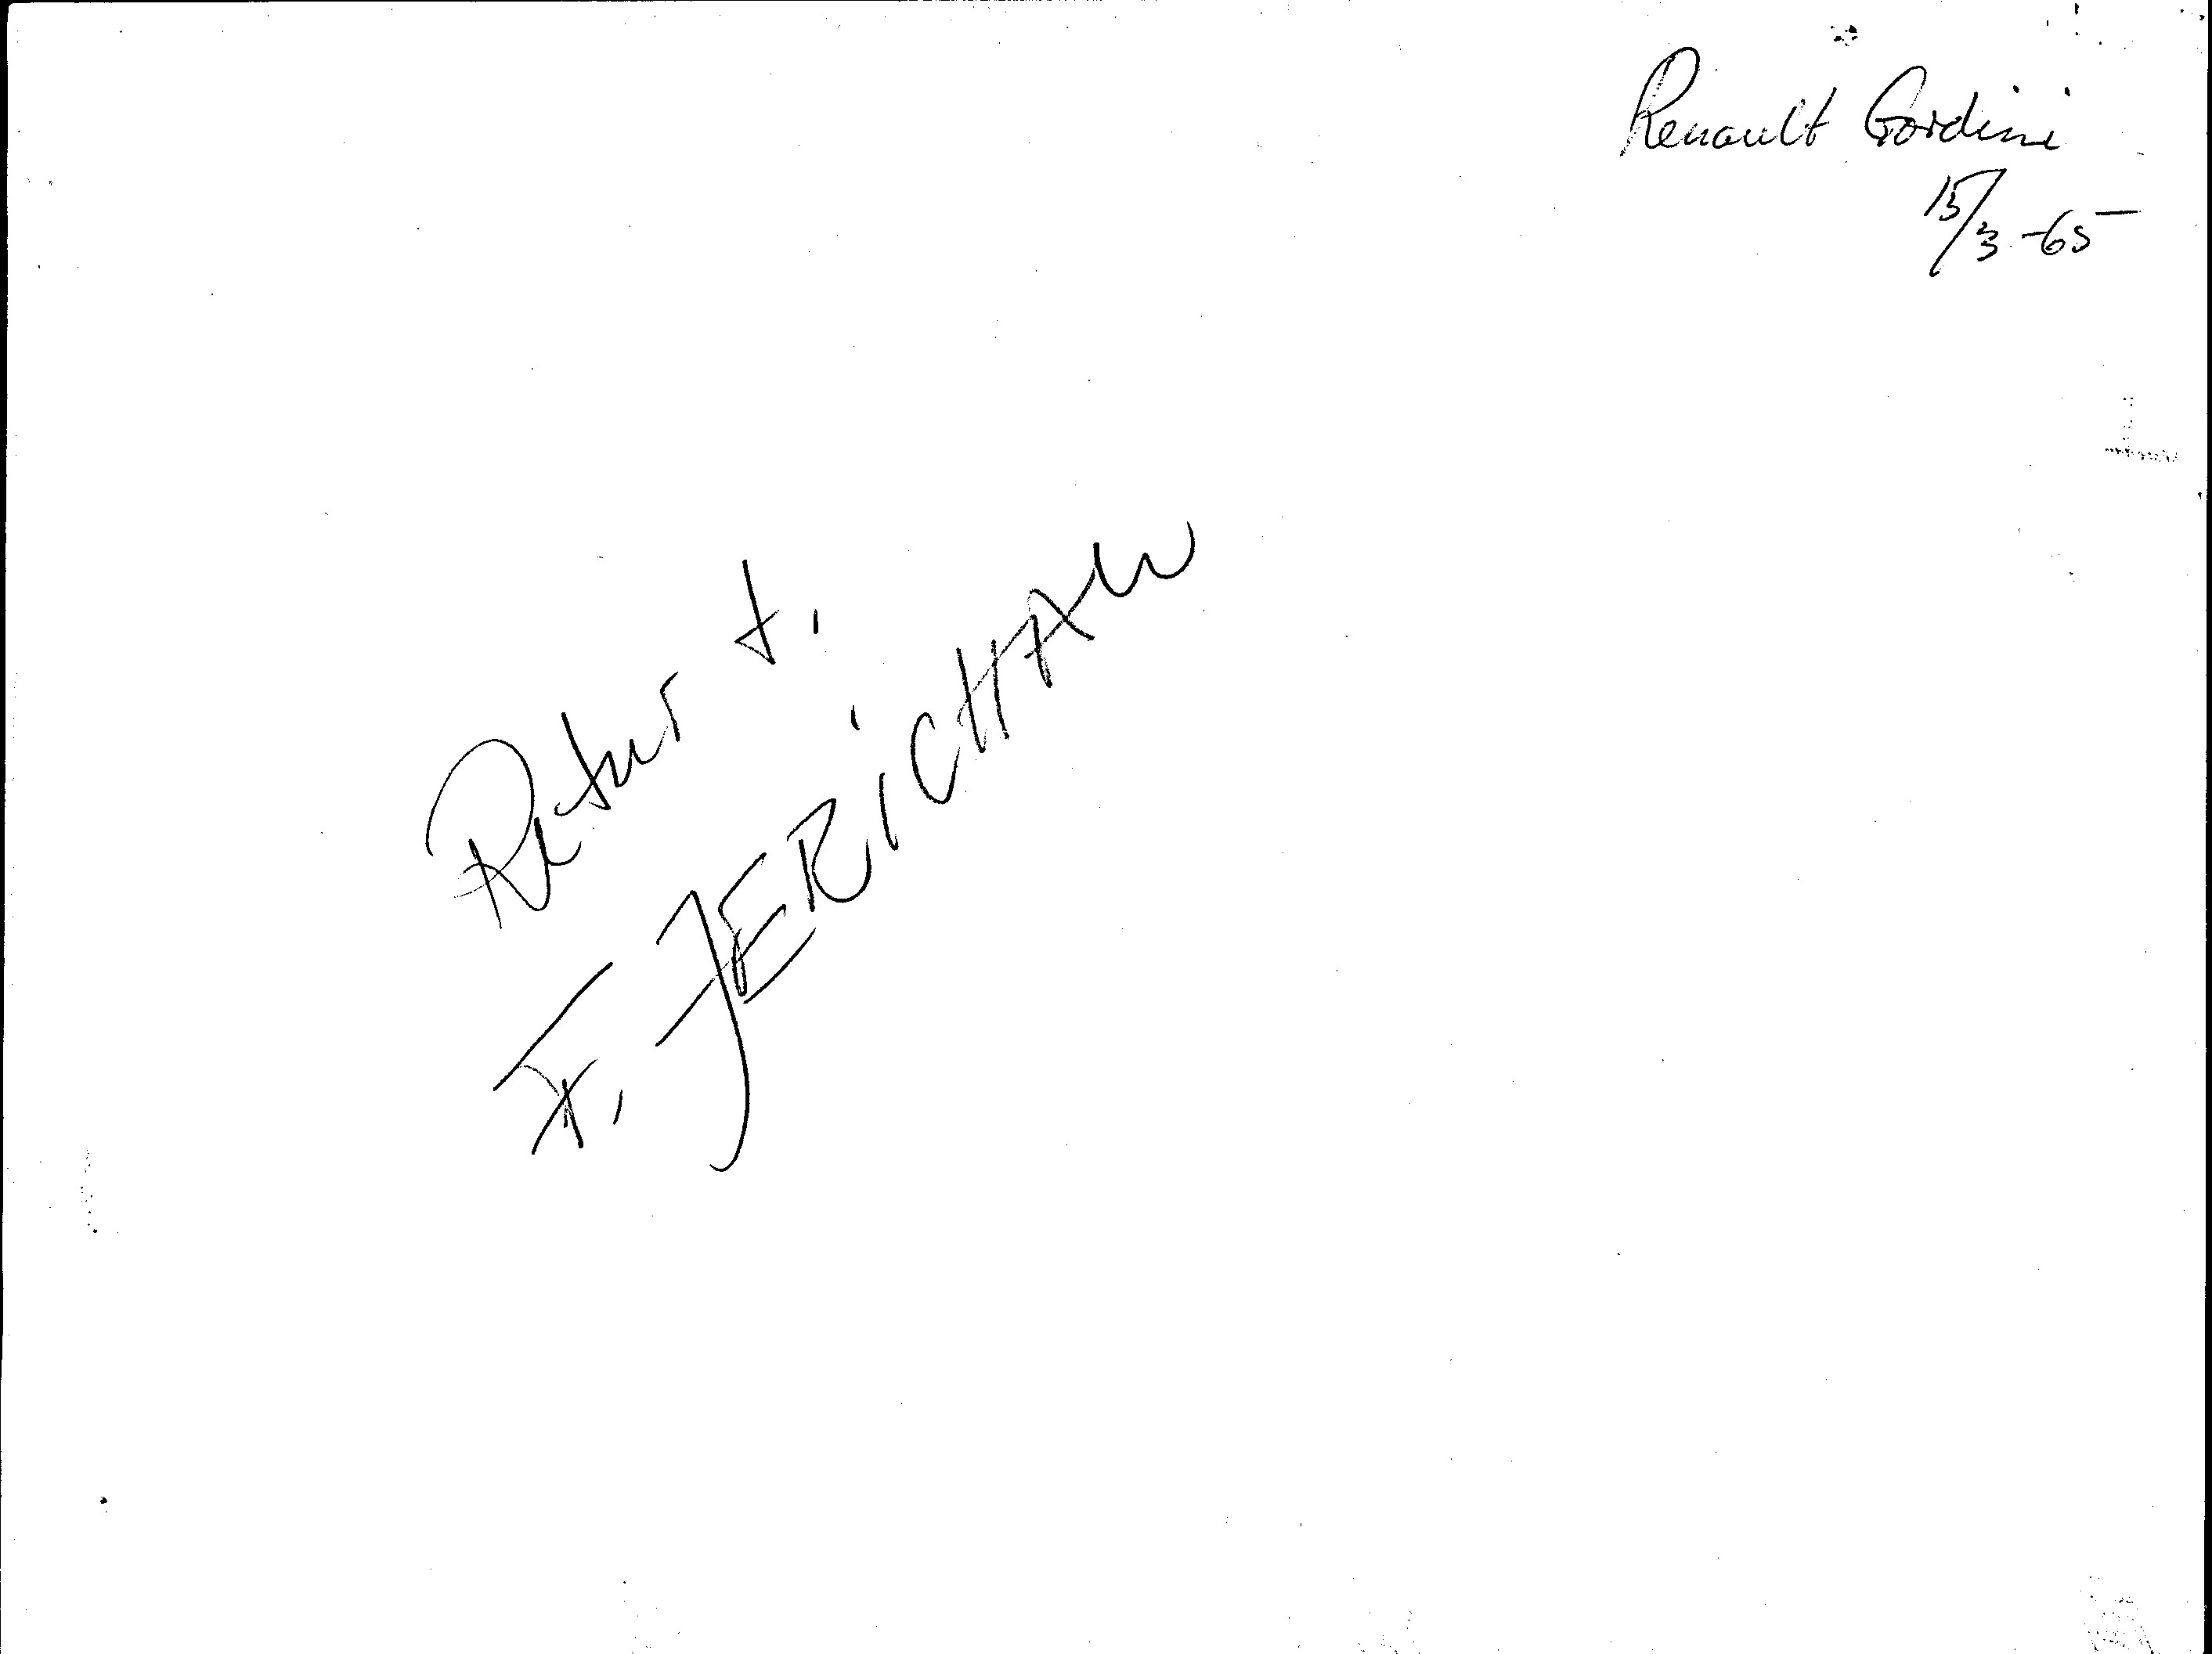 Renault Gordini
15/3-65
Retur t.
F. JERICHAU